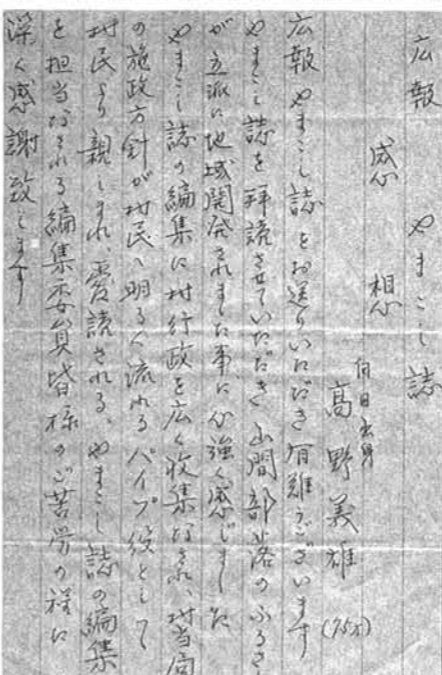 広報 やまこし誌
感想
向田出身
高野義雄 (75才)
広報やまこし誌をお送りいただき有難うございます
やまこし誌を拝読させていただき山間部落のふるさと
が立派に地域開発されました事に心強く感じました
やまこし誌の編集に村行政を広く収集なされ、村当局
の施政方針が村民へ明るく流れるパイプ役として
村民より親しまれ、愛読される、やまこし誌の編集
を担当なされる編集委員皆様のご苦労の程に
深く感謝致します